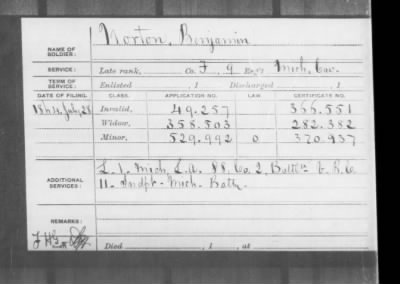 NAME OF SOLDIER: Norton, Benjamin
SERVICE: Late rank, Co. F, 9 Reg't Mich. Cav.
TERM OF SERVICE: Enlisted , 1 Discharged , 1
DATE OF FILING. CLASS. APPLICATION NO. LAW CERTIFICATE NO.
Invalid, 49.257 366.551
Widow, 358.503 282.382
Minor, 529.992 0 370.937
ADDITIONAL SERVICES: L. 1. Mich. L.A. Co. 2, Batt'n V. R. C.
11. Indpt. Mich. Batty.
REMARKS:
Died , 1 , at